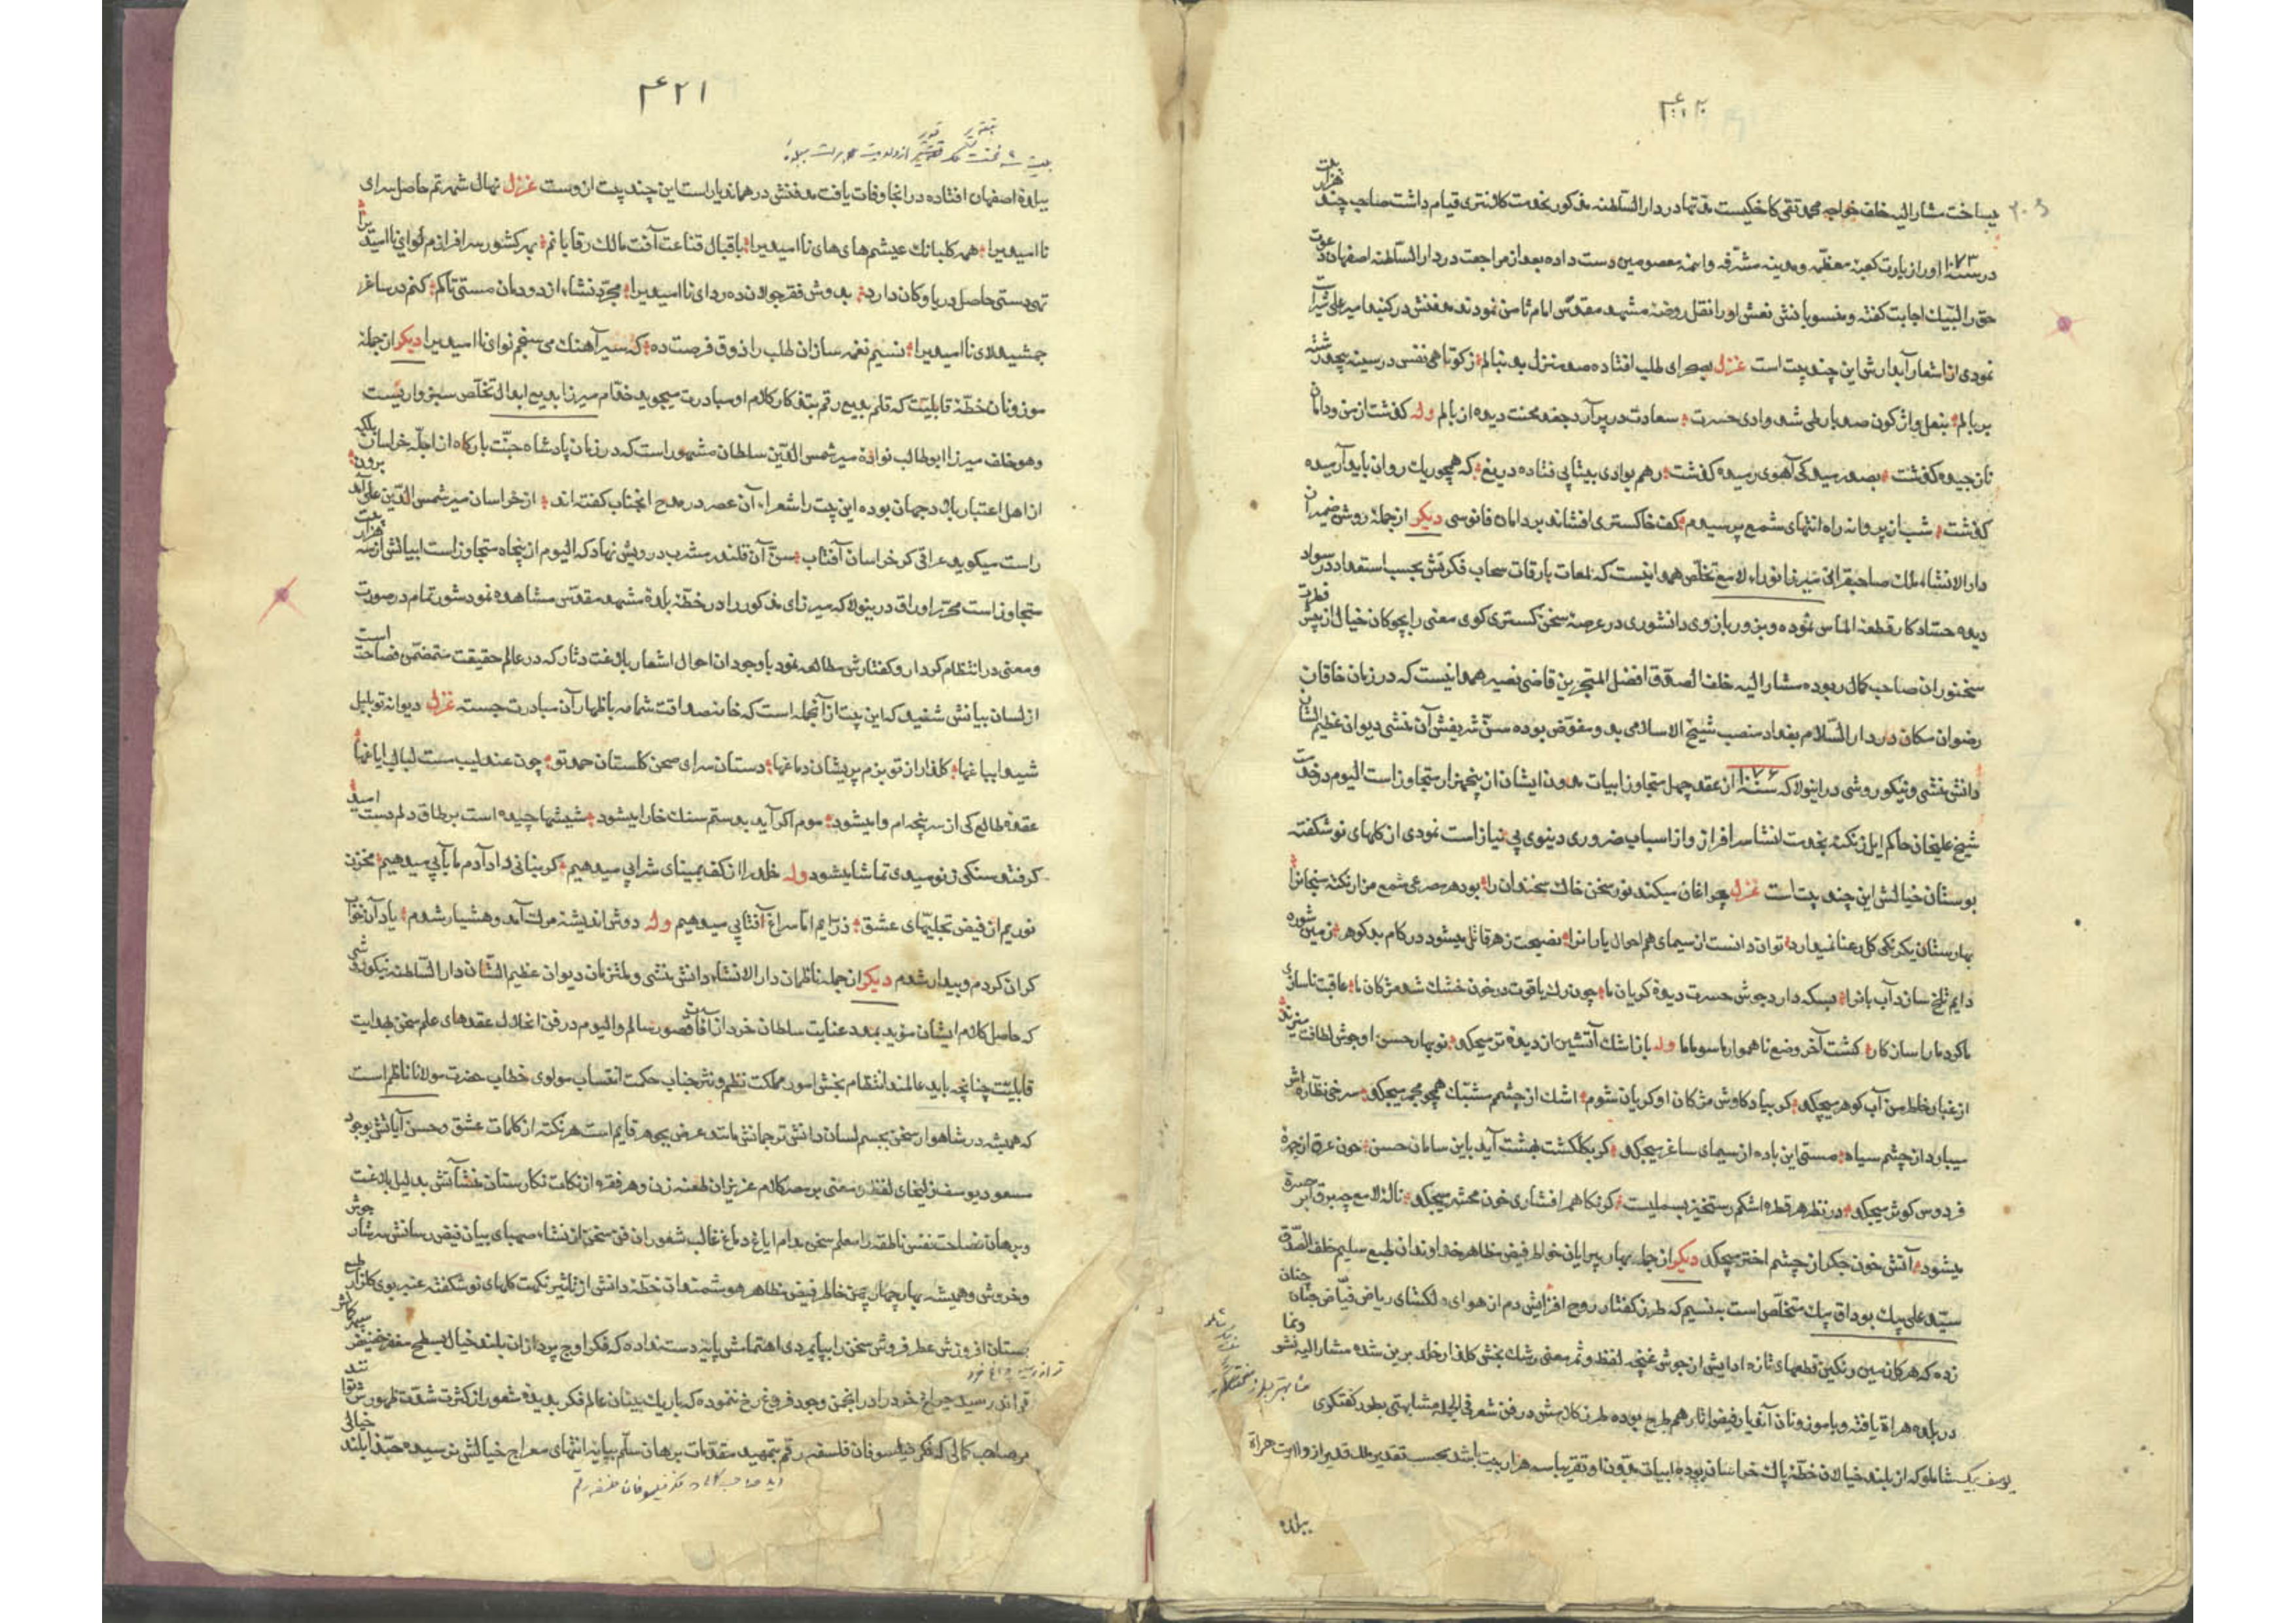 ۴۲۰
هزار بیت
میساخت مشار الیه خلف خواجه محمد تقی کاخکیست مدتها در دار السلطنه مذکور بخدمت کلانتری قیام داشت صاحب چند
در سنه ۱۰۷۳ او را زیارت کعبه معظمه و مدینه مشرفه و ائمه معصومین دست داده بعد از مراجعت در دار السلطنه اصفهان دعوت
حق را لبیک اجابت گفته و منسوبانش نعش او را نقل روضه مشهد مقدس امام ثامن نمودند مدفنش در گنبد امیر علی شیر است
نمودی از اشعار آبدارش این چند بیت است غزل بصحرای طلب افتاده صد منزل بدنبالم ز کوتاهی نفس در سینه پیچد رشته
بر بالم بنعل واژگون صد بار طی شد وادی حسرت سعادت در پر آرد جغد محنت دیده از بالم وله گذشت از من و دامان
ناز چیده گذشت بصد رمیدگی آهوی رمیده گذشت رهم بوادی بیتابی فتاده دریغ که همچو ریگ روان باید آرمیده
گذشت شب از پروانه راه انتهای شمع پرسیدم کف خاکستری افشاند بر دامان فانوسی دیگر از جمله روشن ضمیران
دار الانشاء ملک صاحبقرانی میرزا نوراء لامع تخلص همدانیست که لمعات بارقات سحاب فکرتش بحسب استعداد در سواد
دیده حساد کار قطعه الماس نموده و بزور بازوی دانشوری در عرصه سخن گستری گوی معنی را بچوگان خیال از پیش فطرت
سخنوران صاحب کمال ربوده مشار الیه خلف الصدق افضل المتبحرین قاضی نصیر همدانیست که در زمان خاقان
رضوان مکان در دار السلام بغداد منصب شیخ الاسلامی بدو مفوض بوده سن شریفش آن منشی دیوان عظیم الشان
دانش منشی و نیکو روشی در اینولا که سنه ۱۰۷۶ از عقد چهل متجاوز ابیات مدون ایشان از پنجهزار متجاوز است الیوم در خدمت
شیخ علیخان حاکم ایل زنگنه بخدمت انشا سرافراز و از اسباب ضروری دنیوی بی نیاز است نمودی از گلهای نوشکفته
بوستان خیالش این چند بیت است غزل چراغان میکند نور سخن خاک سخندان را بود هر مصرعی شمع مزار نکته سنجانرا
بهارستان یکرنگی گل رعنا نمیدارد توان دانست از سیمای هم احوال یارانرا نصیحت زهر قاتل میشود در کام بد گوهر زمین شوره
دایم تلخ سازد آب بانرا بسکه دارد جوش حسرت دیده گریان ما چون رگ یاقوت در خون خشک شد مژگان ما عاقبت ناسازی
ما کرد ما را سازگار گشت آخر وضع ناهموار ما سوهان ما وله باز اشک آتشین از دیده تر میچکد نوبهار حسن او جوش لطافت میزند
از غبار خاطر من آب گوهر میچکد گر بیاد کاوش مژگان او گریان شوم اشک از چشم مشبک همچو مجمر میچکد سرخی نظاره اش
میبارد از چشم سیاه مستی این باده از سیمای ساغر میچکد گر بگلگشت بهشت آید باین سامان حسن خون عرق از چهره
فردوس کوثر میچکد در نظر هر قطره اشکم رستخیز بسملیست گر نگاهم افشاری خون محشر میچکد ناله لامع چو برق ابر حسرت
میشود آتش خون جگر از چشم اختر میچکد دیگر از جمله بهار پیرایان خواطر فیض مظاهر خداوندان طبع سلیم خلف الصدق
سید علی بیک بوداق بیک متخلص است به نسیم که طرز گفتار روح افزایش دم از هوای دلگشای ریاض فیاض جنان
زده که هر کان مین رنگین قطعهای تازه ادایش از جوش غنچه لفظ و ثمر معنی رشک بخش گلزار خلد برین شده مشار الیه نشو ونما
در بلده هراة یافته و با موزونان آنفیار فیض اثار هم طرح بوده طرز کلامش در فن شعر فی الجمله مشابهتی بطرز گفتگوی
یوسف بیک شاملو که از بلند خیالان خطه پاک خراسان بوده ابیات مدون او تقریبا سه هزار بیت باشد بحسب تقدیر ملک قدیر از ولایت هراة
ببلده
۴۲۱
ببلده اصفهان افتاده در انجا وفات یافت مدفنش در همان دیار است این چند بیت از وست غزل نهال شهرتم حاصل سرای
ناامیدیرا همه گلبانگ عیشم های های ناامیدیرا باقبال قناعت آفت مالک رقابانم بهر کشور سرافرازم لوای ناامیدیرا
تهی دستی حاصل دریا و کان دارد بدوش فقر جولان ده ردای ناامیدیرا مجرد نشاء از دودمان مستی تاکم کنم در ساغر
جمشید لای ناامیدیرا نسیم نغمه سازان طلب را ذوق فرصت ده که سیر آهنگ می سنجم نوای ناامیدیرا دیگر از جمله
موزونان خطه قابلیت که قلم بدیع رقم بتذکار کلام او مبادرت میجوید خدام میرزا بدیع ابدال تخلص سبزواریست
وهو خلف میرزا ابوطالب نواده میر شمس الدین سلطان مشهور است که در زمان پادشاه جنت بارگاه از اجله خراسان بلکه
از اهل اعتبار بلاد جهان بوده این بیت را شعراء آن عصر در مدح انجناب گفته اند از خراسان میر شمس الدین علی آمد برون
راست میگوید عراقی کز خراسان آفتاب سن آن قلندر مشرب درویش نهاد که الیوم از پنجاه متجاوز است ابیاتش از سه هزار بیت
متجاوز است محرر اوراق در ینولا که میرزای مذکور را در خطه بلده مشهد مقدس مشاهده نمود شور تمام در صورت
و معنی در انتظام کردار و گفتارش مطالعه نمود با وجود ان احوال اشعار بلاغت دثار که در عالم حقیقت متضمن فصاحت است
از لسان بیانش شنید که این بیت از آنجمله است که خامه صداقت شمامه باظهار آن مبادرت جسته غزل دیوانه تو بلبل
شیدا بباغها گلزار از تو بزم پریشان دماغها دستان سرای صحن گلستان حمد تو چون عندلیب مست لبالب ایاغها
عقده طالع کی از سر پنجه ام وا میشود موم اگر آید بدستم سنگ خارا میشود شیشها چیده است بر طاق دلم دست امید
گر فتد سنگی ز نومیدی تماشا میشود وله خلد را از کف بمینای شرابی میدهیم گر بنانی داد آدم ما بآبی میدهیم مخزن
نوریم از فیض تجلیهای عشق ذره ایم اما سراغ آفتابی میدهیم وله دوش اندیشه مرگ آمد و هشیار شدم یاد آن خواب
گران کردم و بیدار شدم دیگر از جمله ناظمان دار الانشاء دانش منشی و ملتزمان دیوان عظیم الشان دار السلطنه نیکو روشی
که حاصل کلام ایشان مؤید بمدد عنایت سلطان خرد از آفات قصور سالم و الیوم در فن انحلال عقدهای علم سخن بهدایت
قابلیت چنانچه باید عالمند انتظام بخش امور مملکت نظم و نثر جناب حکمت انتساب مولوی خطاب حضرت مولانا ناظم است
که همیشه در شاهوار سخن بجسم لسان دانش ترجمانش مانند عرض بجوهر قایم است هر نکته از کلمات عشق و حسن آیاتش بوجود
مسعود یوسف زلیخای لفظ و معنی بر مصر کلام عزیزان طعنه زن و هر فقره از نکات نگارستان منشآتش بدلیل بلاغت
و برهان فصاحت نفس ناطقه را معلم سخن مدام ایاغ دماغ غالب شعوران فن سخن از نشاء صهبای بیان فیض رسانش سرشار جوش
و خروش و همیشه بهار چهار چمن خاطر فیض مظاهر هوشمندان خطه دانش از تاثیر نکهت گلهای نو شکفته عنبر بوی گلزار طبع
بستان افروزش عطر فروش سخن را بپایمردی اهتمامش پایه دست نداده که فکر اوج پردازان بلند خیال بسطح مقعر حضیض سپهر کمالش
تواند رسید چراغ خرد را در انجمن وجود فروغ رخ ننموده که باریک بینان عالم فکر بدیده شعور از کثرت شدت ظهورش
هر صاحب کمالی که فکر فیلسوفان فلسفه رقم بتمهید مقدمات برهان سلم بپایه انتهای معراج خیالش نرسیده حبذا بلند خیالی